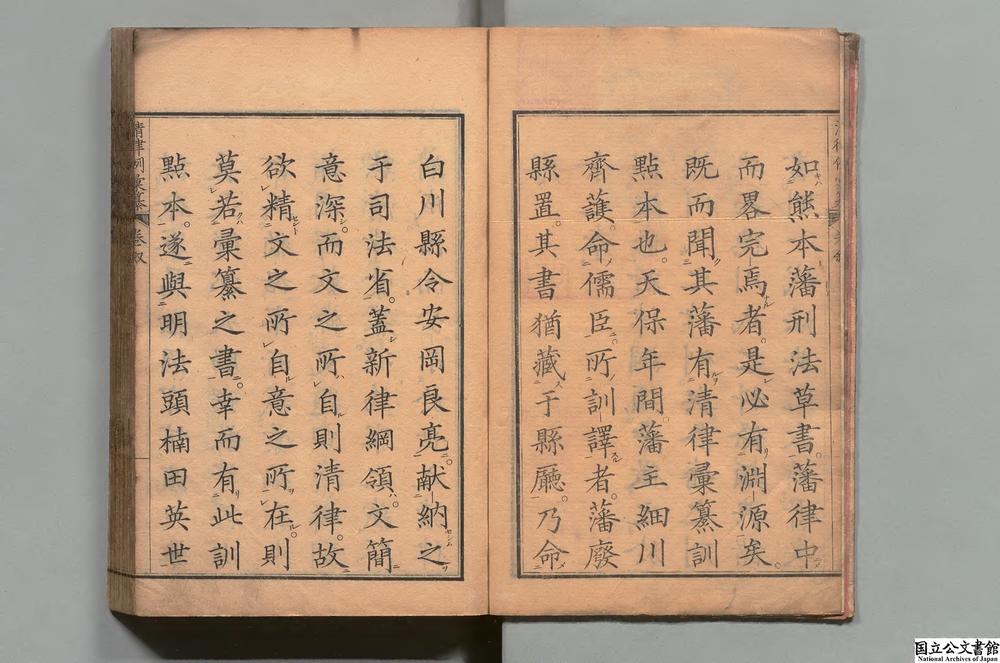 如熊本藩刑法草書。藩律中
而畧完焉者。是必有淵源矣。
既而聞其藩有清律彙纂訓
點本也。天保年間。藩主細川
齊護。命儒臣所訓譯者。藩廢
縣置。其書猶藏于縣廳。乃命
白川縣令安岡良亮。献納之
于司法省。蓋新律綱領。文簡
意深。而文之所自則清律。故
欲精文之所自意之所在。則
莫若彙纂之書。幸而有此訓
點本。遂與明法頭楠田英世
清律例彙纂 卷叙
国立公文書館
National Archives of Japan